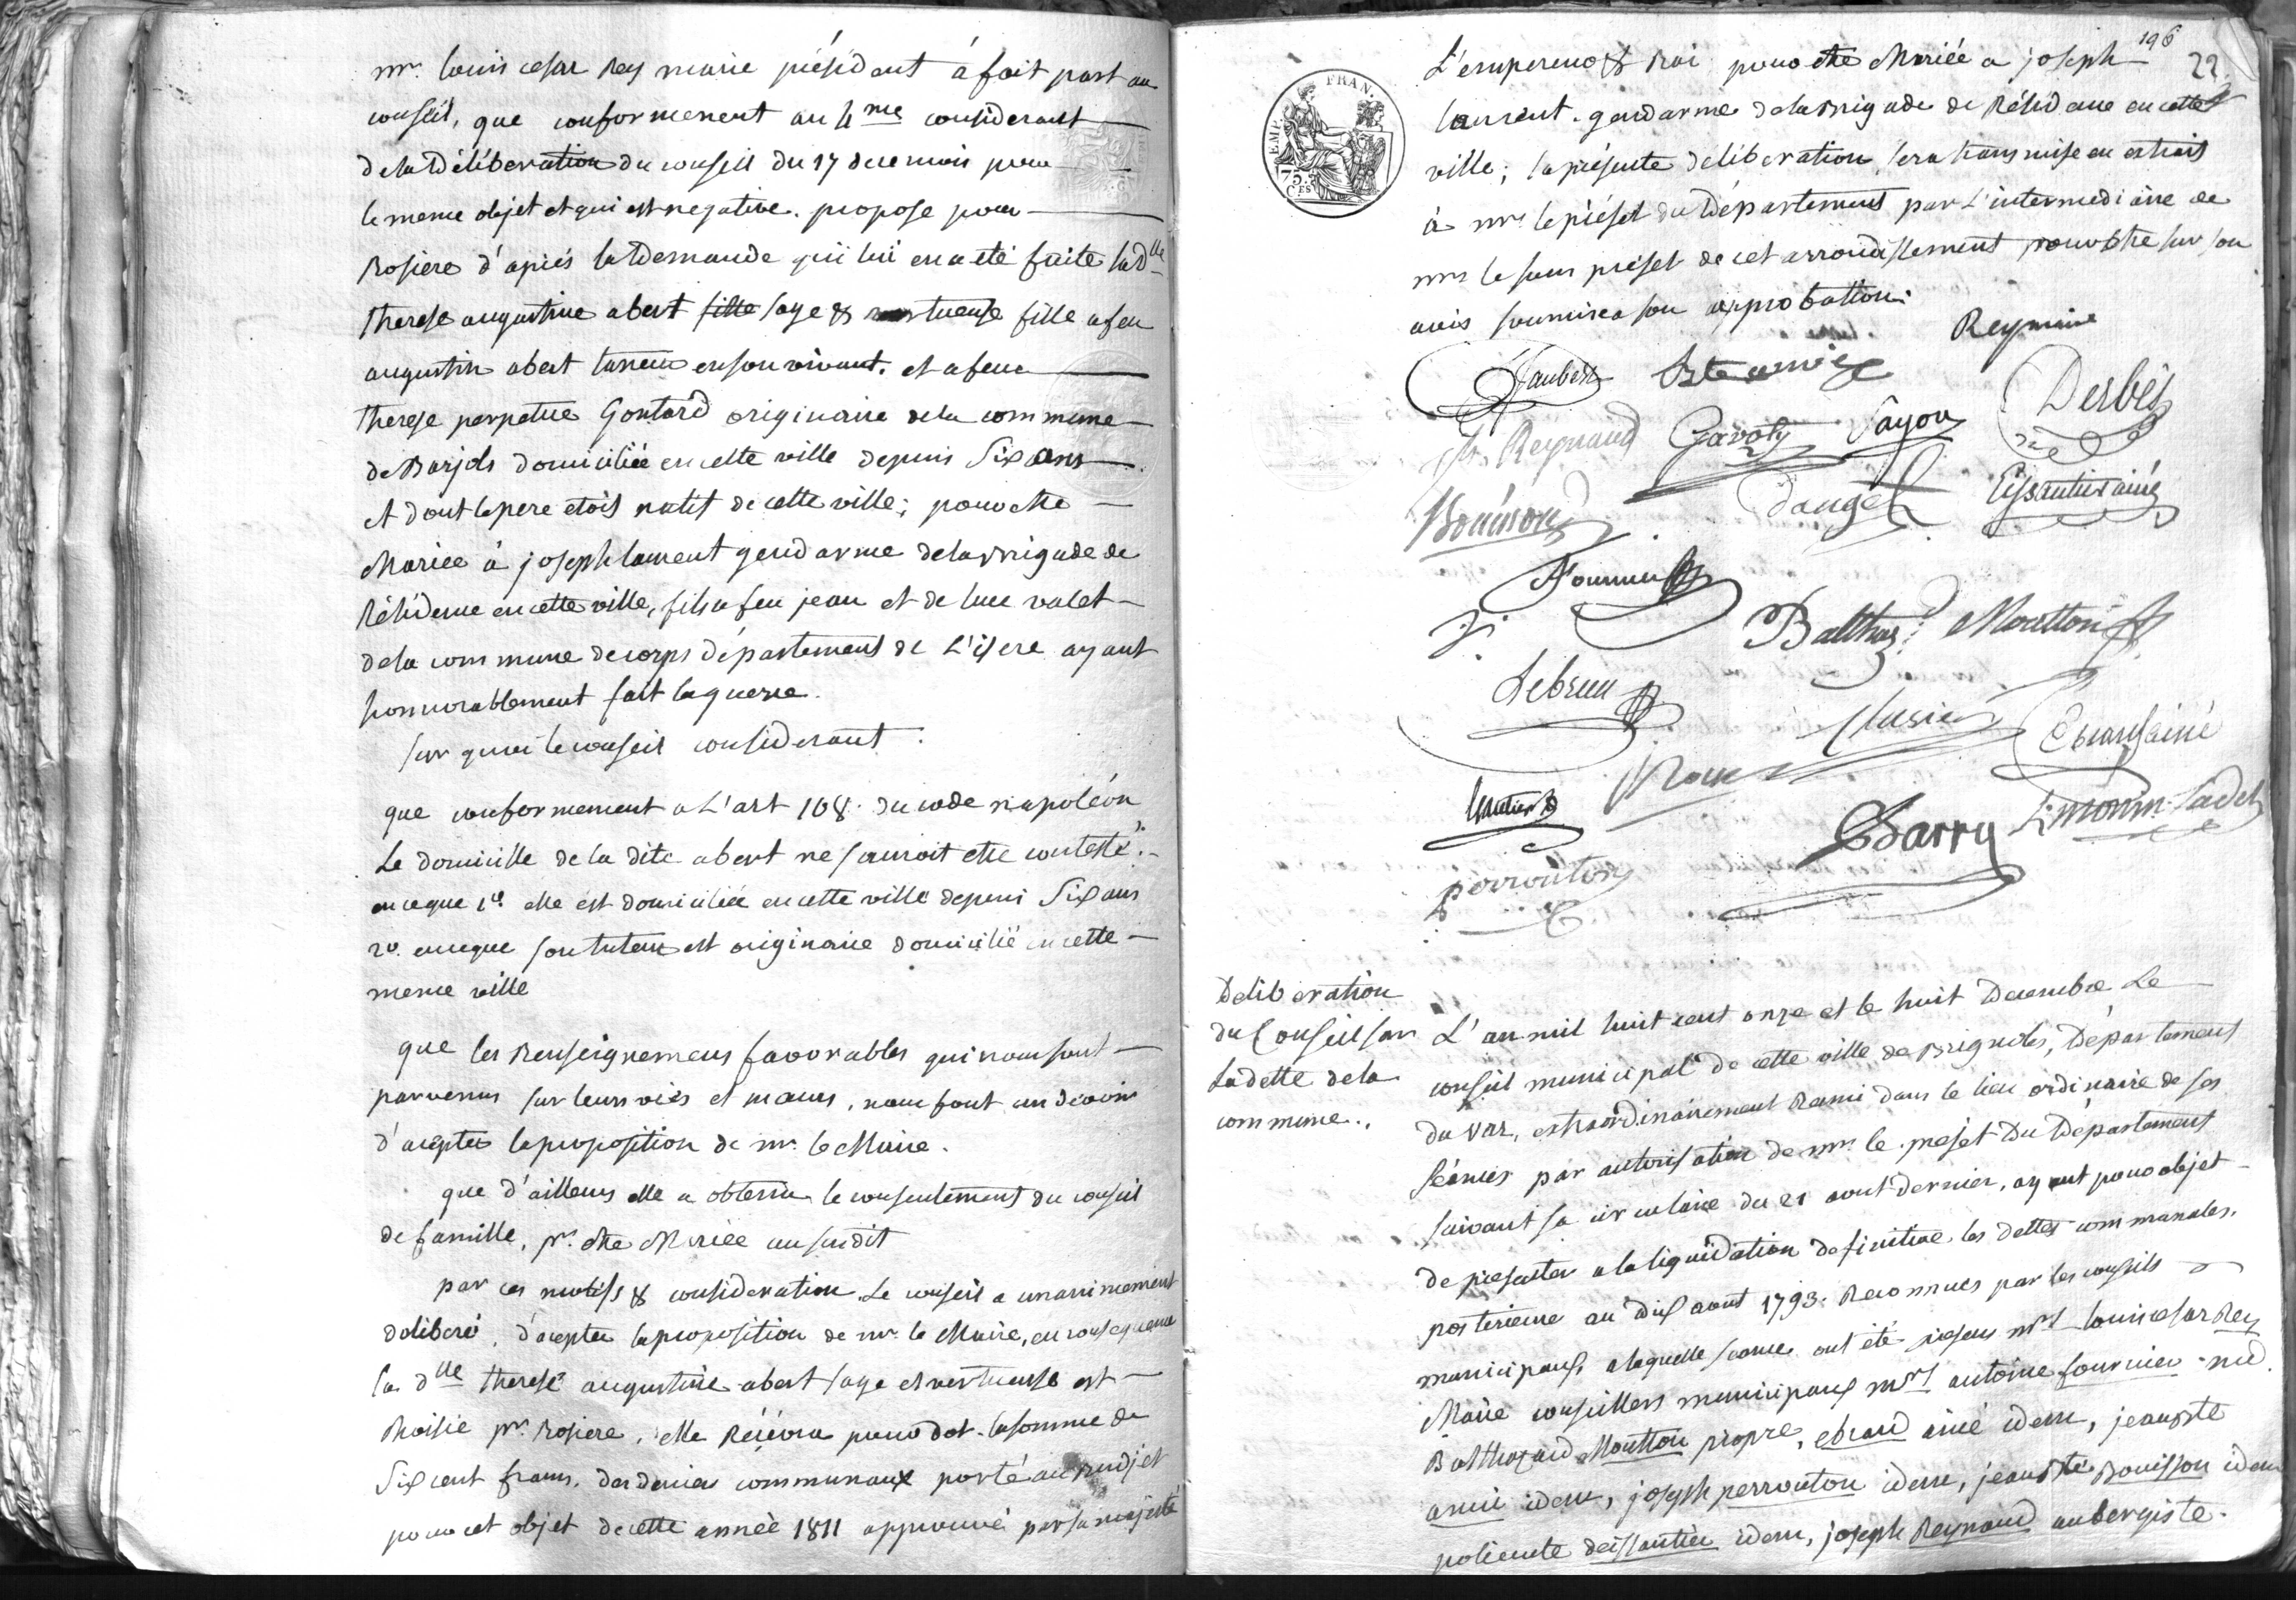 mr. louis cesar Rey maire président à fait part au
conseil, que conformement au 4me considerant
de la Déliberation du conseil du 17 de ce mois pour
le meme objet et qui est negative. propose pour
Rosiere d'après la Demande qui lui en a eté faite la dlle
therese augustine abert fille sage & vertueuse fille a feu
augustin abert taneur en son vivant. et a feue
therese perpetue Gontard originaire de la commune
de Barjols domiciliée en cette ville depuis Six ans
et dont le pere étoit natif de cette ville; pour etre
Mariée à joseph laurent gendarme de la Brigade de
Résidence en cette ville, fils a feu jean et de luce valet
de la commune de corps département de L'isere ayant
honnorablement fait la guerre.
sur quoi le conseil considerant:
que conformement a L'art 108. du code napoléon
Le domicille de la dite abert ne sauroit etre contesté.
en ce que 1º elle est domiciliée en cette ville depuis Six ans
2º en ce que son tuteur est originaire domicilié en cette
meme ville
que les Renseignemens favorables qui nous sont
parvenus sur leurs vies et mœurs, nous font un devoir
d'accepter la proposition de mr. le Maire.
que d'ailleurs elle a obtenu le consentement du conseil
de famille, pr. etre Mariée au susdit
par ces motifs & consideration. Le conseil a unanimement
deliberé, d'accepter la proposition de mr. le Maire, en consequence
la dlle therese augustine abert sage et vertueuse est
choisie pr. Rosiere, elle Recevra pour dot la somme de
Six cent francs. des deniers communaux porté au Budjet
pour cet objet de cette année 1811 approuvé par sa majesté
196
22
L'empereur & Roi pour etre Mariée a joseph
laurent. gendarme de la Brigade de Résidence en cette
ville; la présente deliberation sera transmise en extrait
à mr. le préfet du Département par L'intermediaire de
mr le sous préfet de cet arrondissement pour etre sur son
avis soumise a son approbation.
FRAN.
EMP.
75.
CES
Rey maire
Jaubert
Derbès
Jh. Reynaud Gavoty Fayon
Bouisson Dauge
Fournier
Balthaz.d Moutton
Lebrun
Roux
Gautier
Barry
perrouton
Deliberation
du Conseil sur
La dette de la
commune.
L'an mil huit cent onze et le huit Decembre Le
conseil municipal de cette ville de Brignoles, Département
du var, extraordinairement Reuni dans le lieu ordinaire de ses
Séances par autorisation de mr. le prefet Du Département
suivant sa circulaire du 21 aout dernier, ayant pour objet
de presenter a la liquidation definitive les dettes communales,
posterieure au dix aout 1793. Reconnues par les conseils
municipaux, a laquelle seance ont été présens mrs louis cesar Rey
Maire conseillers municipaux mrs antoine fournier med.
Balthazard Moutton propre, ebrard ainé idem, jean Bte
amic idem, joseph perrouton idem, jean Bte Bouisson idem
policarte deissautier idem, joseph Reynaud aubergiste.